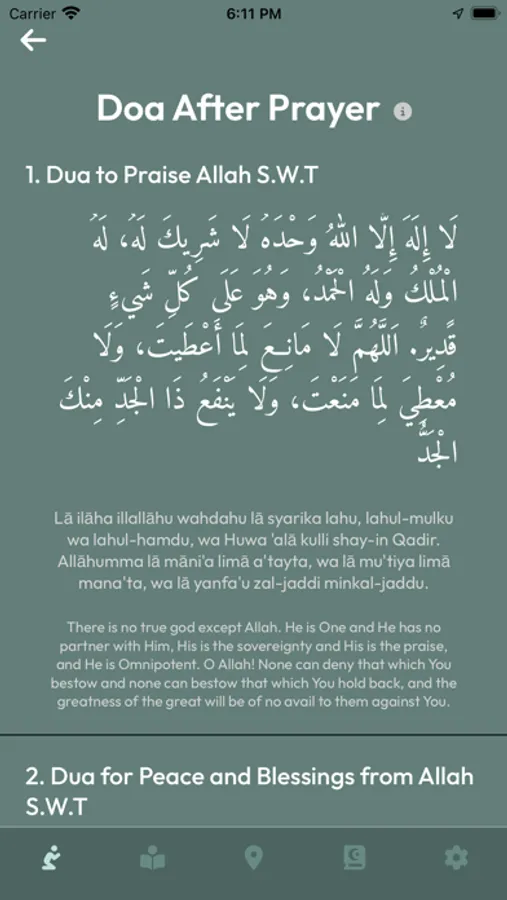 Carrier
6:11 PM
Doa After Prayer
1. Dua to Praise Allah S.W.T
لَا إِلَهَ إِلَّا اللهُ وَحْدَهُ لَا شَرِيكَ لَهُ، لَهُ
الْمُلْكُ وَلَهُ الْحَمْدُ، وَهُوَ عَلَى كُلِّ شَيءٍ
قَدِيرٌ. اَللَّهُمَّ لَا مَانِعَ لِمَا أَعْطَيتَ، وَلَا
مُعْطِيَ لِمَا مَنَعْتَ، وَلَا يَنْفَعُ ذَا الْجَدِّ مِنْكَ
الْجَدُّ
Lā ilāha illallāhu wahdahu lā syarika lahu, lahul-mulku
wa lahul-hamdu, wa Huwa 'alā kulli shay-in Qadir.
Allāhumma lā māni'a limā a'tayta, wa lā mu'tiya limā
mana'ta, wa lā yanfa'u zal-jaddi minkal-jaddu.
There is no true god except Allah. He is One and He has no
partner with Him, His is the sovereignty and His is the praise,
and He is Omnipotent. O Allah! None can deny that which You
bestow and none can bestow that which You hold back, and the
greatness of the great will be of no avail to them against You.
2. Dua for Peace and Blessings from Allah
S.W.T